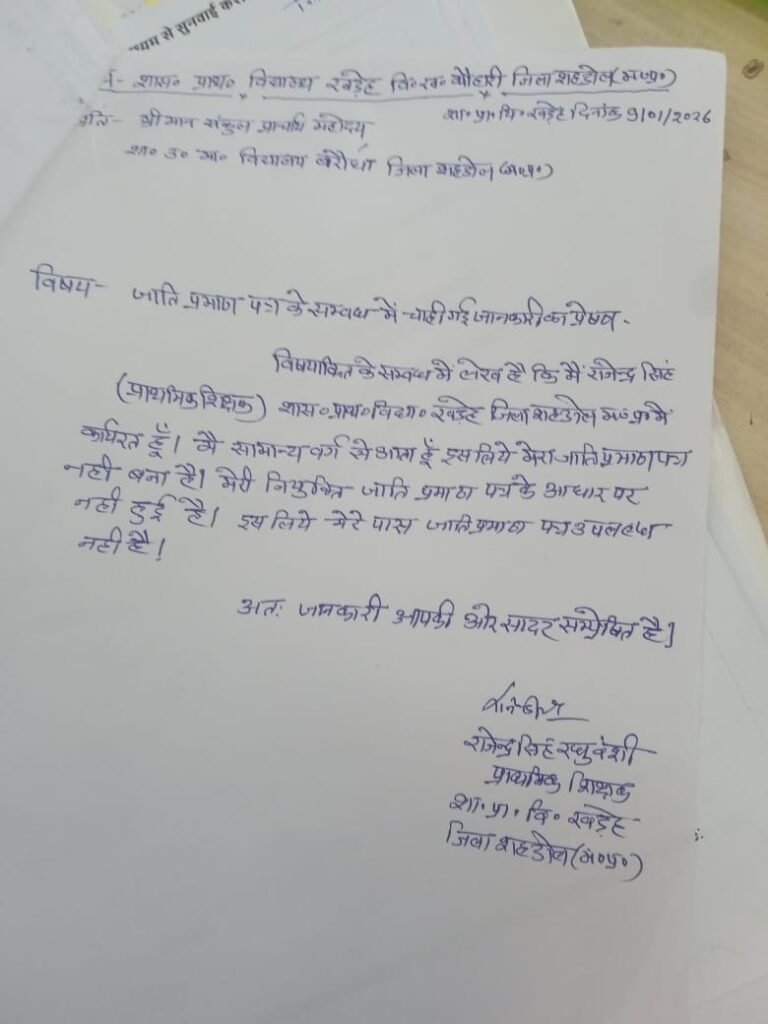 ध्यम से सुनवाई कर
शास॰ प्राथ॰ विद्यालय खड़ेह वि॰ख॰ ब्यौहारी जिला शहडोल (म॰प्र॰)
प्रति- श्रीमान संकुल प्राचार्य महोदय
शा॰ प्रा॰ वि॰ खड़ेह दिनांक 9/01/2026
शा॰ उ॰ मा॰ विद्यालय जिला शहडोल (म॰प्र॰)
विषय- जाति प्रमाण पत्र के सम्बन्ध में चाही गई जानकारी का प्रेषण.
विषयांकित के सम्बन्ध में लेख है कि मैं राजेन्द्र सिंह
(प्राथमिक शिक्षक) शास॰ प्राथ॰ विद्या॰ खड़ेह जिला शहडोल म॰प्र॰ मे
कार्यरत हूँ। मै सामान्य वर्ग से आता हूँ इस लिये मेरा जाति प्रमाण पत्र
नही बना है। मेरी नियुक्ति जाति प्रमाण पत्र के आधार पर
नही हुई है। इस लिये मेरे पास जाति प्रमाण पत्र उपलब्ध
नही है।
अतः जानकारी आपकी ओर सादर सम्प्रेषित है।
राजेन्द्र सिंह रघुवंशी
प्राथमिक शिक्षक
शा॰ प्रा॰ वि॰ खड़ेह
जिला शहडोल (म॰प्र॰)